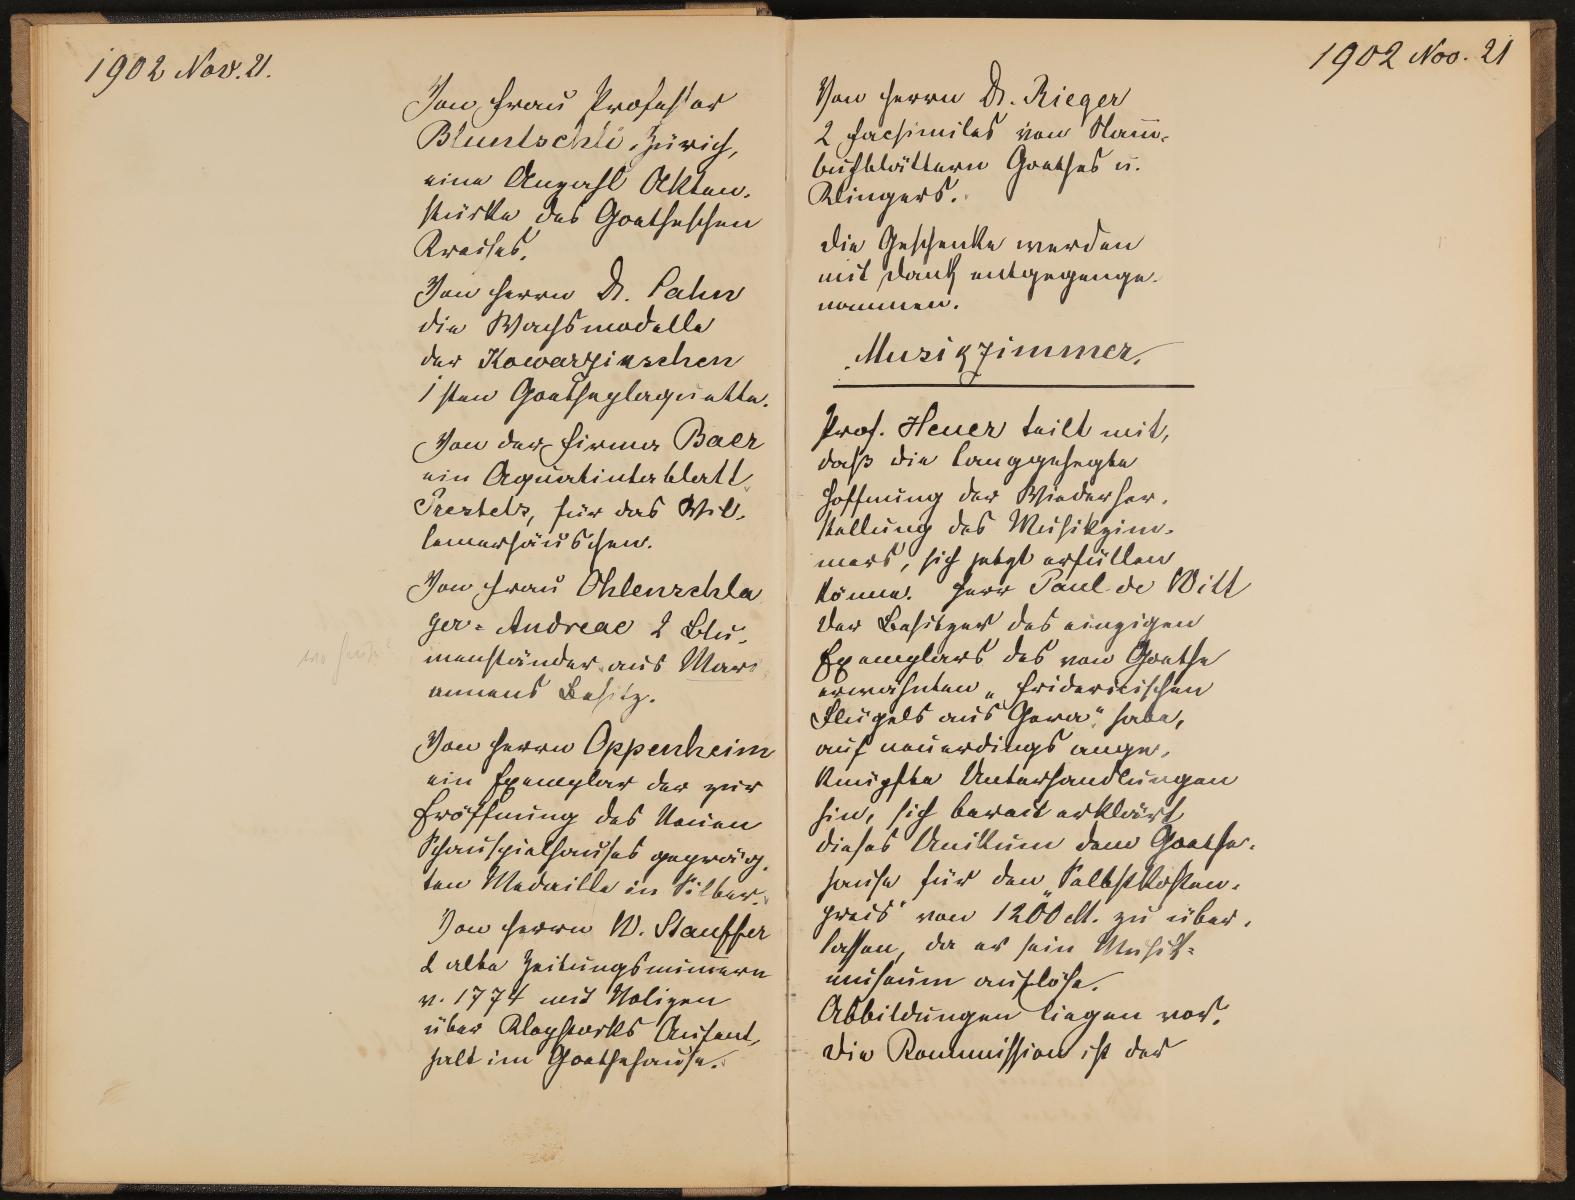 1902 Nov. 21.
Von Frau Professor
Bluntschli, Zürich,
eine Anzahl Akten-
stücke des Goetheschen
Kreises.
Von Herrn Dr. Cahn
die Wachsmodelle
der Kowarzikschen
1sten Goetheplaquette.
Von der Firma Baer
ein Aquatintablatt
Prestels, für das Wil-
lemerhäuschen.
Von Frau Ohlenschla
ger-Andreae 2 Blu-
menständer aus Mari
annens Besitz.
Von Herrn Oppenheim
ein Exemplar der zur
Eröffnung des Neuen
Schauspielhauses gepräg-
ten Medaille in Silber.
Von Herrn W. Stauffer
2 alte Zeitungsnum̅ern
v. 1774 mit Notizen
über Klopstocks Aufent-
halt im Goethehause.
1902 Nov. 21
Von Herrn Dr. Rieger
2 Facsimiles von Stam̅-
buchblättern Goethes u.
Klingers.
Die Geschenke werden
mit Dank entgegenge-
nommen.
Musikzimmer.
Prof. Heuer teilt mit,
daß die langgehegte
Hoffnung der Wiederher-
stellung des Musikzim-
mers, sich jetzt erfüllen
könne. Herr Paul de Witt
der Besitzer des einzigen
Exemplars des von Goethe
erwähnten „Fridericischen
Flügels aus Gera" habe,
auf neuerdings ange-
knüpfte Unterhandlungen
hin, sich bereit erklärt
dieses Unikum dem Goethe-
hause für den „Selbstkosten-
preis" von 1200 M. zu über-
lassen, da er sein Musik-
museum auflöse.
Abbildungen liegen vor.
Die Kommission ist der